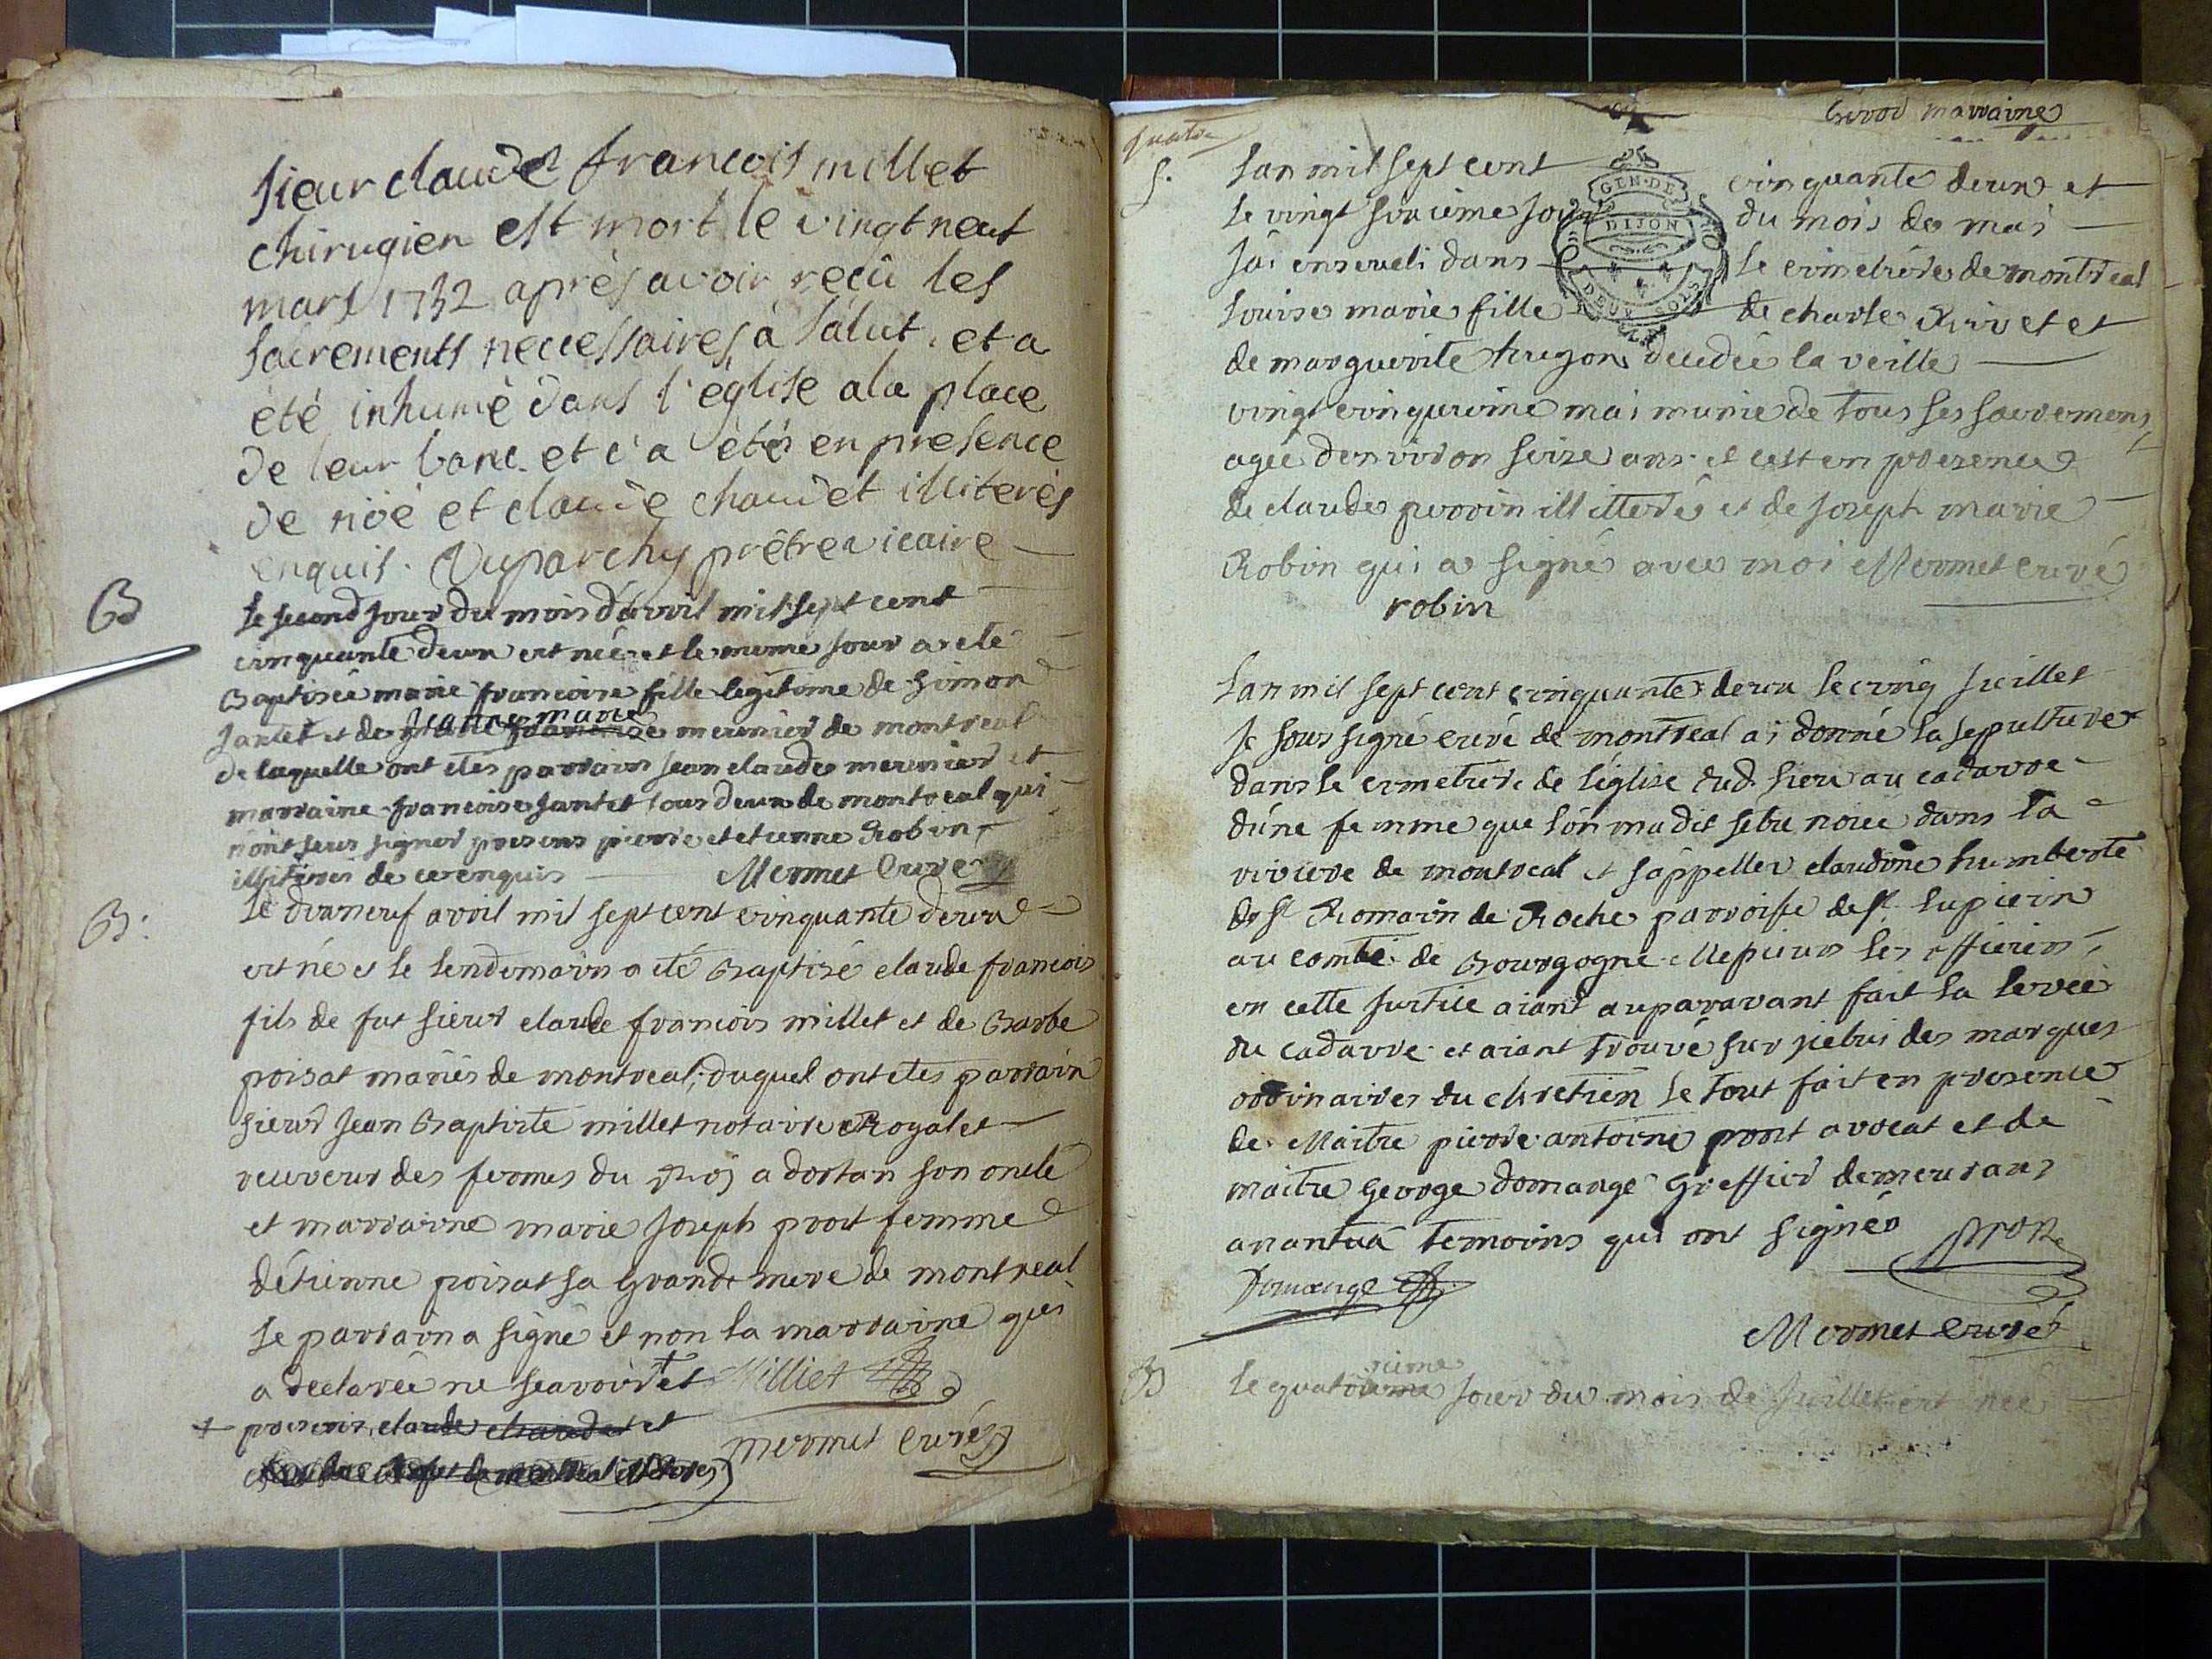 sieur claude francois millet
chirugien est mort le vingt neuf
mars 1732 après avoir reçû les
sacrements necessaires à salut. et a
été inhumé dans l'église a la place
de leur banc. et c'a étés en presence
de nöé et claude chaudet illiterés
enquis. Duparchy prêtre vicaire
B
le second jour du mois d'avril mil sept cent
cinquante deux est née et le meme jour a eté
Baptisée marie francoise fille legitime de Simon
Jantet et de Jeanne marie francoise meunier de montreal
de laquelle ont etés parrain jean claude meunier et
marraine francoise Jantet tous deux de montreal qui
n'ont seus signer presens pierre et etienne Robin
illiterés de ce enquis Mermet Curé
B.
le dixneuf avril mil sept cent cinquante deux
est né et le lendemain a eté Baptisé claude francois
fils de fut sieur claude francois millet et de Barbe
poisat mariés de montreal; duquel ont etes parrain
sieur Jean Baptiste millet notaire Royal et
receveur des fermes du Roj a dortan son oncle
et marraine marie Joseph prost femme
d'étienne poisat sa Grande mere de montreal
le parrain a signé et non la marraine qui
a declarée ne sçavoir + et Milliet
+ presens claude chaudet et
mermet curé
Curé marraine
quatre
S.
Lan mil sept cent cinquante deux et
le vingt sixieme jour du mois de mai
j'ai enseveli dans le cimetiére de montreal
Louise marie fille de charle Rivet et
de marguerite decedée la veille
vingt cinquieme mai munie de tous ses sacremens
agée d'environ seize ans et c'est en presence
de claude perrin illitteré et de Joseph marie
Robin qui a signé avec moi Mermet curé
robin
GEN. DE
DIJON
DEUX SOLS
Lan mil sept cent cinquante deux le cinq juillet
Je soussigné curé de montreal ai donné la seppulture
dans le cimetiére de léglise dud. lieu au cadavre
d'une femme que l'on m'a dit s'etre noiée dans la
riviere de montreal et s'appeller claudine humberte
de St Romain de Roche parroisse de St lupicin
au comté de Bourgogne Messieurs les officiers
en cette justice aiant auparavant fait la levée
du cadavre et aiant trouvé sur icelui des marques
ordinaires du chretien le tout fait en presence
de Maitre pierre antoine prost avocat et de
maitre George domange Greffier demeurans
a nantua temoins qui ont signés prost
Domange
Mermet curé
B
rieme
le quatorzieme jour du mois de juillet est née